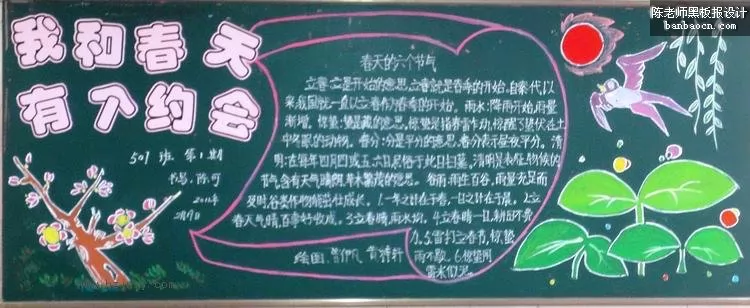 我和春天
有个约会
501班 第1期
书写:陈可
2月9日
春天的六个节气
立春:立是开始的意思,立春就是春季的开始。自秦代以
来,我国就一直以立春作为春季的开始。雨水:降雨开始,雨量
渐增。惊蛰:蛰是藏的意思,惊蛰是指春雷乍动,惊醒了蛰伏在土
中冬眠的动物。春分:分是平分的意思,春分表示昼夜平分。清
明:在每年四月四或五、六日,民俗于此日扫墓,清明是表征物候的
节气,含有天气晴朗、草木繁茂的意思。谷雨:雨生百谷,雨量充足而
及时,谷类作物能茁壮成长。1.一年之计在于春,一日之计在于晨。2.立
春天气晴,百事好收成。3.立春晴,雨水匀。4.立春晴一日,耕田不费
力。5.雷打立春节,惊蛰
雨不歇。6.惊蛰闻
雷米似泥。
绘图:
陈老师黑板报设计
banbaocn.com